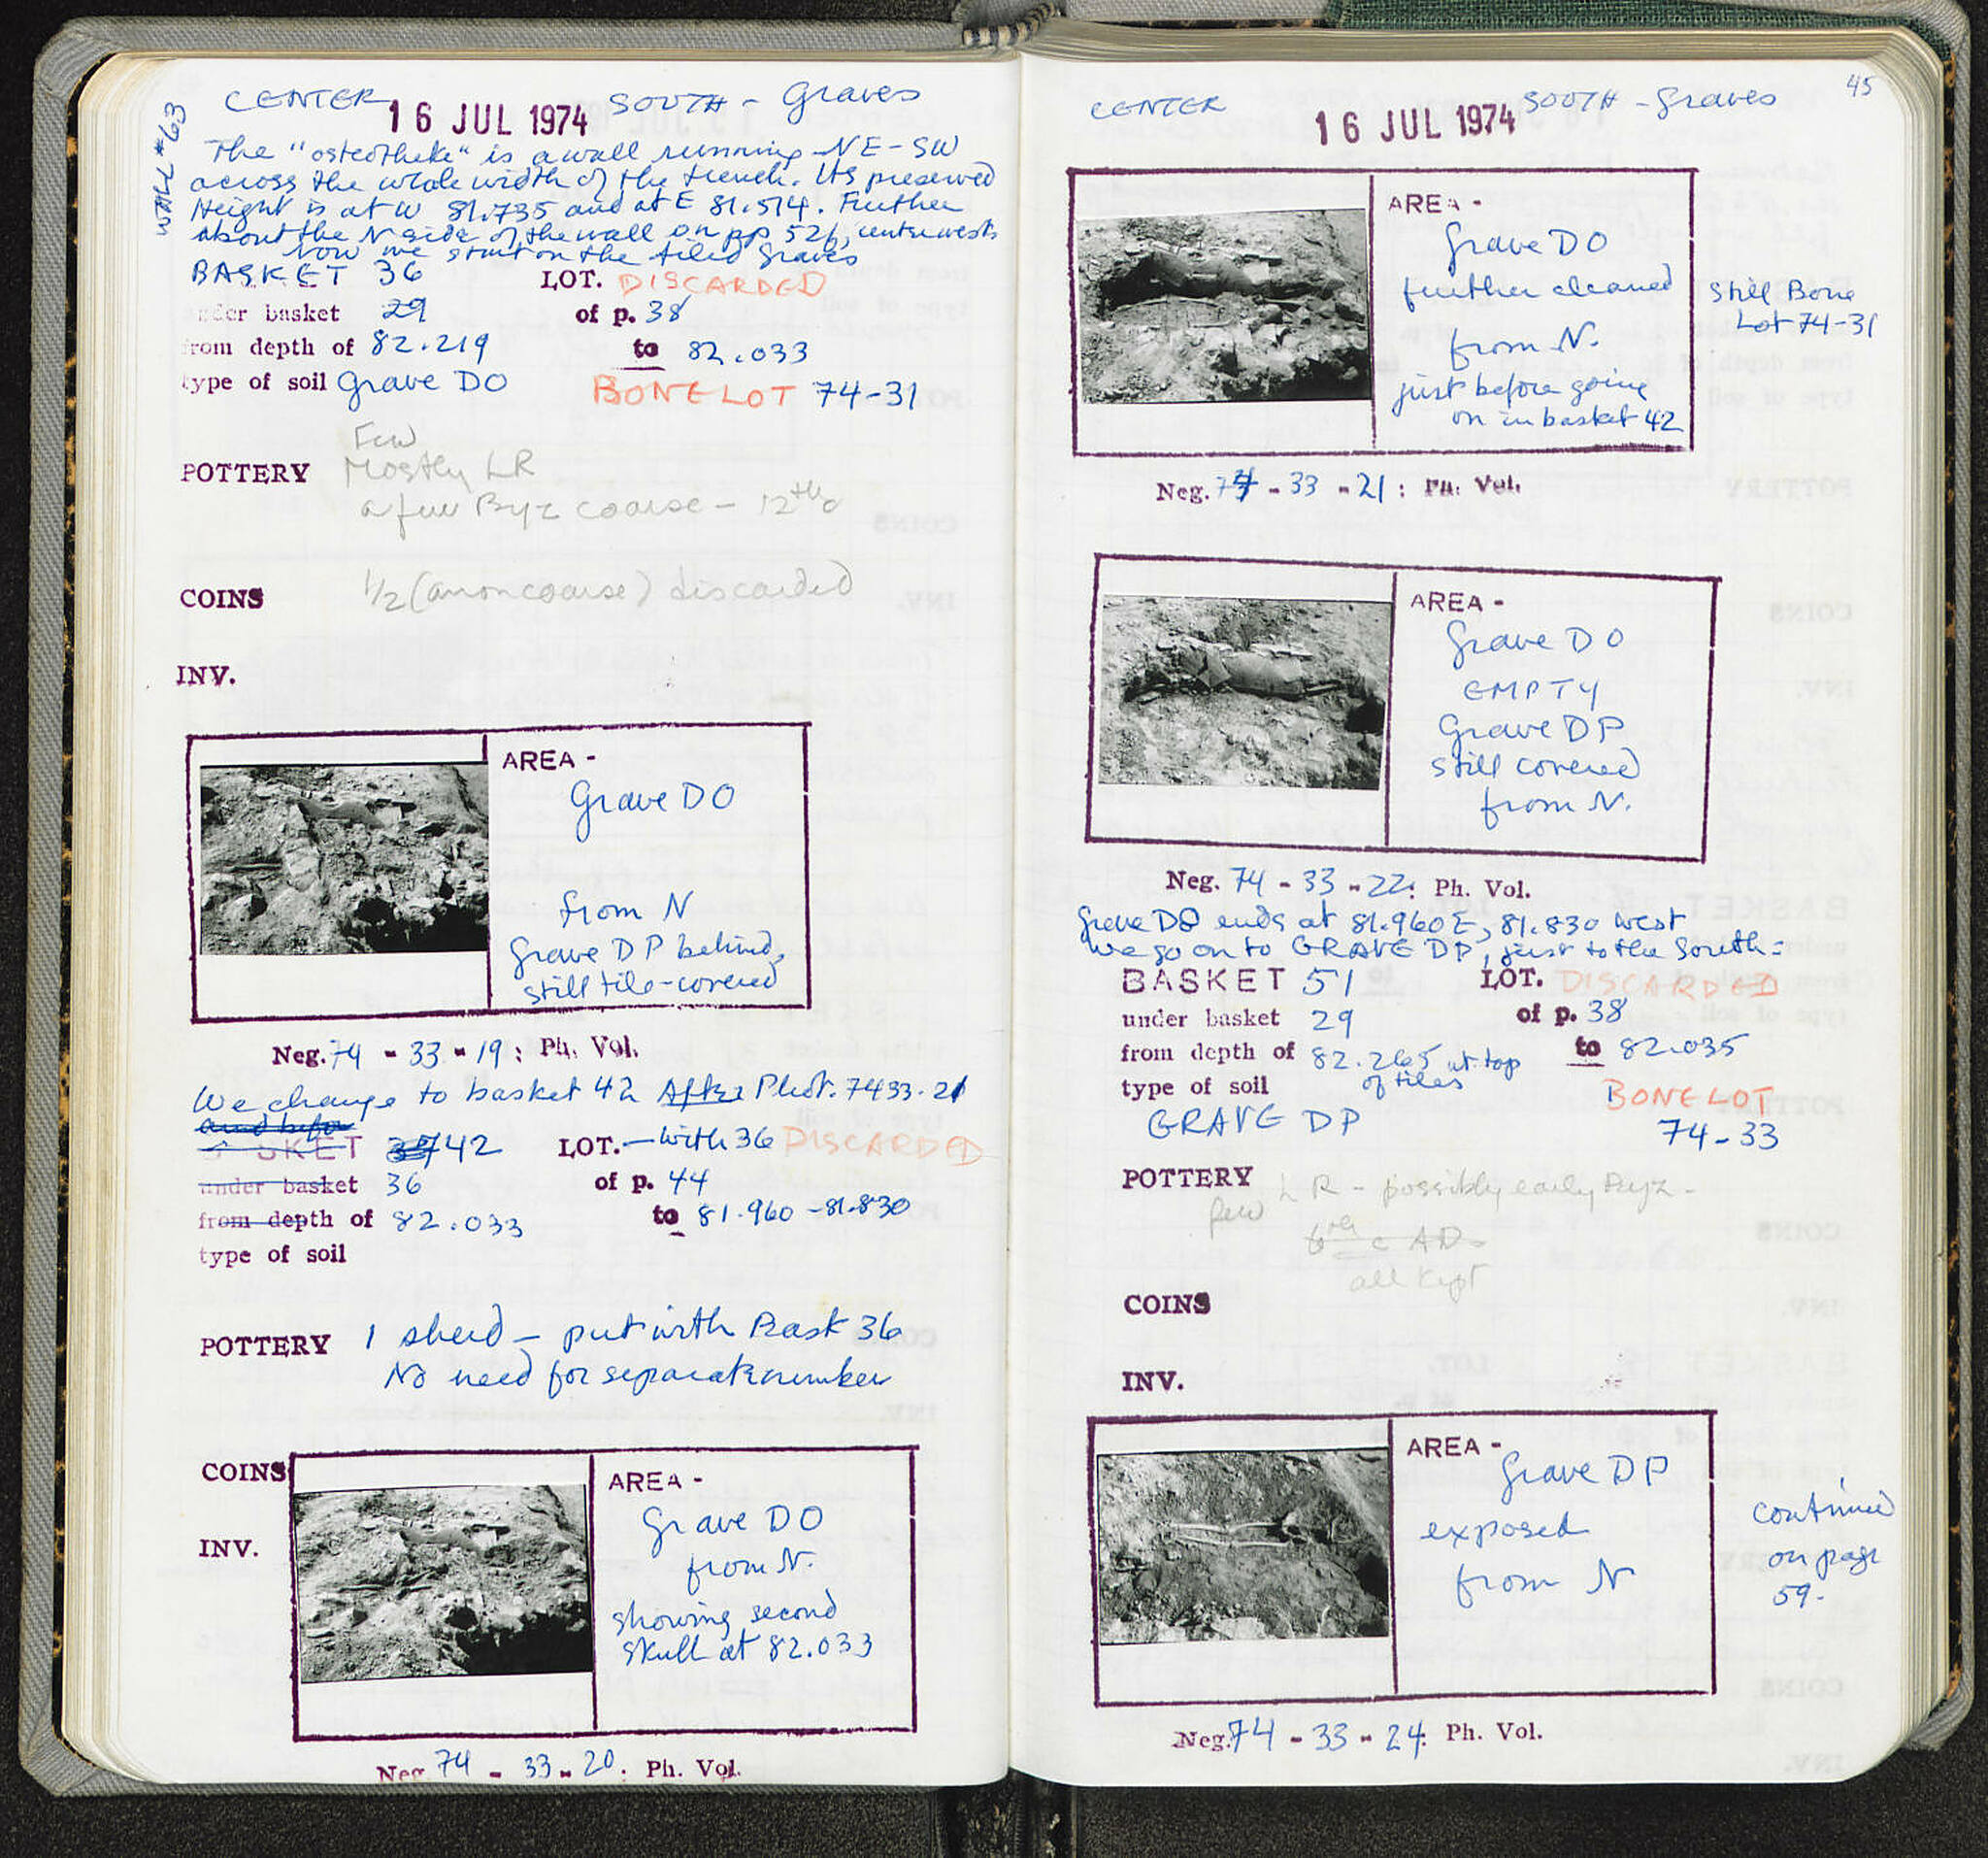 CENTER 16 JUL 1974 SOUTH - Graves
WALL #63
The "osteotheke" is a wall running NE-SW
across the whole width of the trench. Its preserved
Height is at W 81.735 and at E 81.514. Further
about the N side of the wall on pp 52f,
Now we start on the tiled graves
BASKET 36 LOT. DISCARDED
under basket 29 of p. 38
from depth of 82.219 to 82.033
type of soil Grave DO BONE LOT 74-31
Few
POTTERY Mostly LR
a few Byz coarse - 12th c
COINS 1/2 (anon coarse) discarded
INV.
AREA -
Grave DO
from N
Grave DP behind,
still tile-covered
Neg. 74 - 33 - 19 : Ph. Vol.
We change to basket 42 After Phot. 7433.21
and before
BASKET 42 LOT. - with 36 DISCARDED
under basket 36 of p. 44
from depth of 82.033 to 81.960 - 81.830
type of soil
POTTERY 1 sherd - put with Bask 36
No need for separate number
COINS
INV.
AREA -
Grave DO
from N.
showing second
skull at 82.033
Neg 74 - 33 - 20 . Ph. Vol.
45
CENTER 16 JUL 1974 SOUTH - Graves
AREA -
Grave DO
further cleaned
from N.
just before going
on in basket 42
Still Bone
Lot 74-31
Neg. 74 - 33 - 21 : Ph. Vol.
AREA -
Grave DO
EMPTY
Grave DP
still covered
from N.
Neg. 74 - 33 - 22 : Ph. Vol.
Grave DO ends at 81.960 E, 81.830 West
We go on to GRAVE DP, just to the South:
BASKET 51 LOT. DISCARDED
under basket 29 of p. 38
from depth of 82.265 at top of tiles to 82.035
type of soil BONE LOT
GRAVE DP 74-33
POTTERY LR - possibly early Byz -
few
6th c AD -
all kept
COINS
INV.
AREA -
Grave DP
exposed
from N
continued
on page
59.
Neg. 74 - 33 - 24 : Ph. Vol.